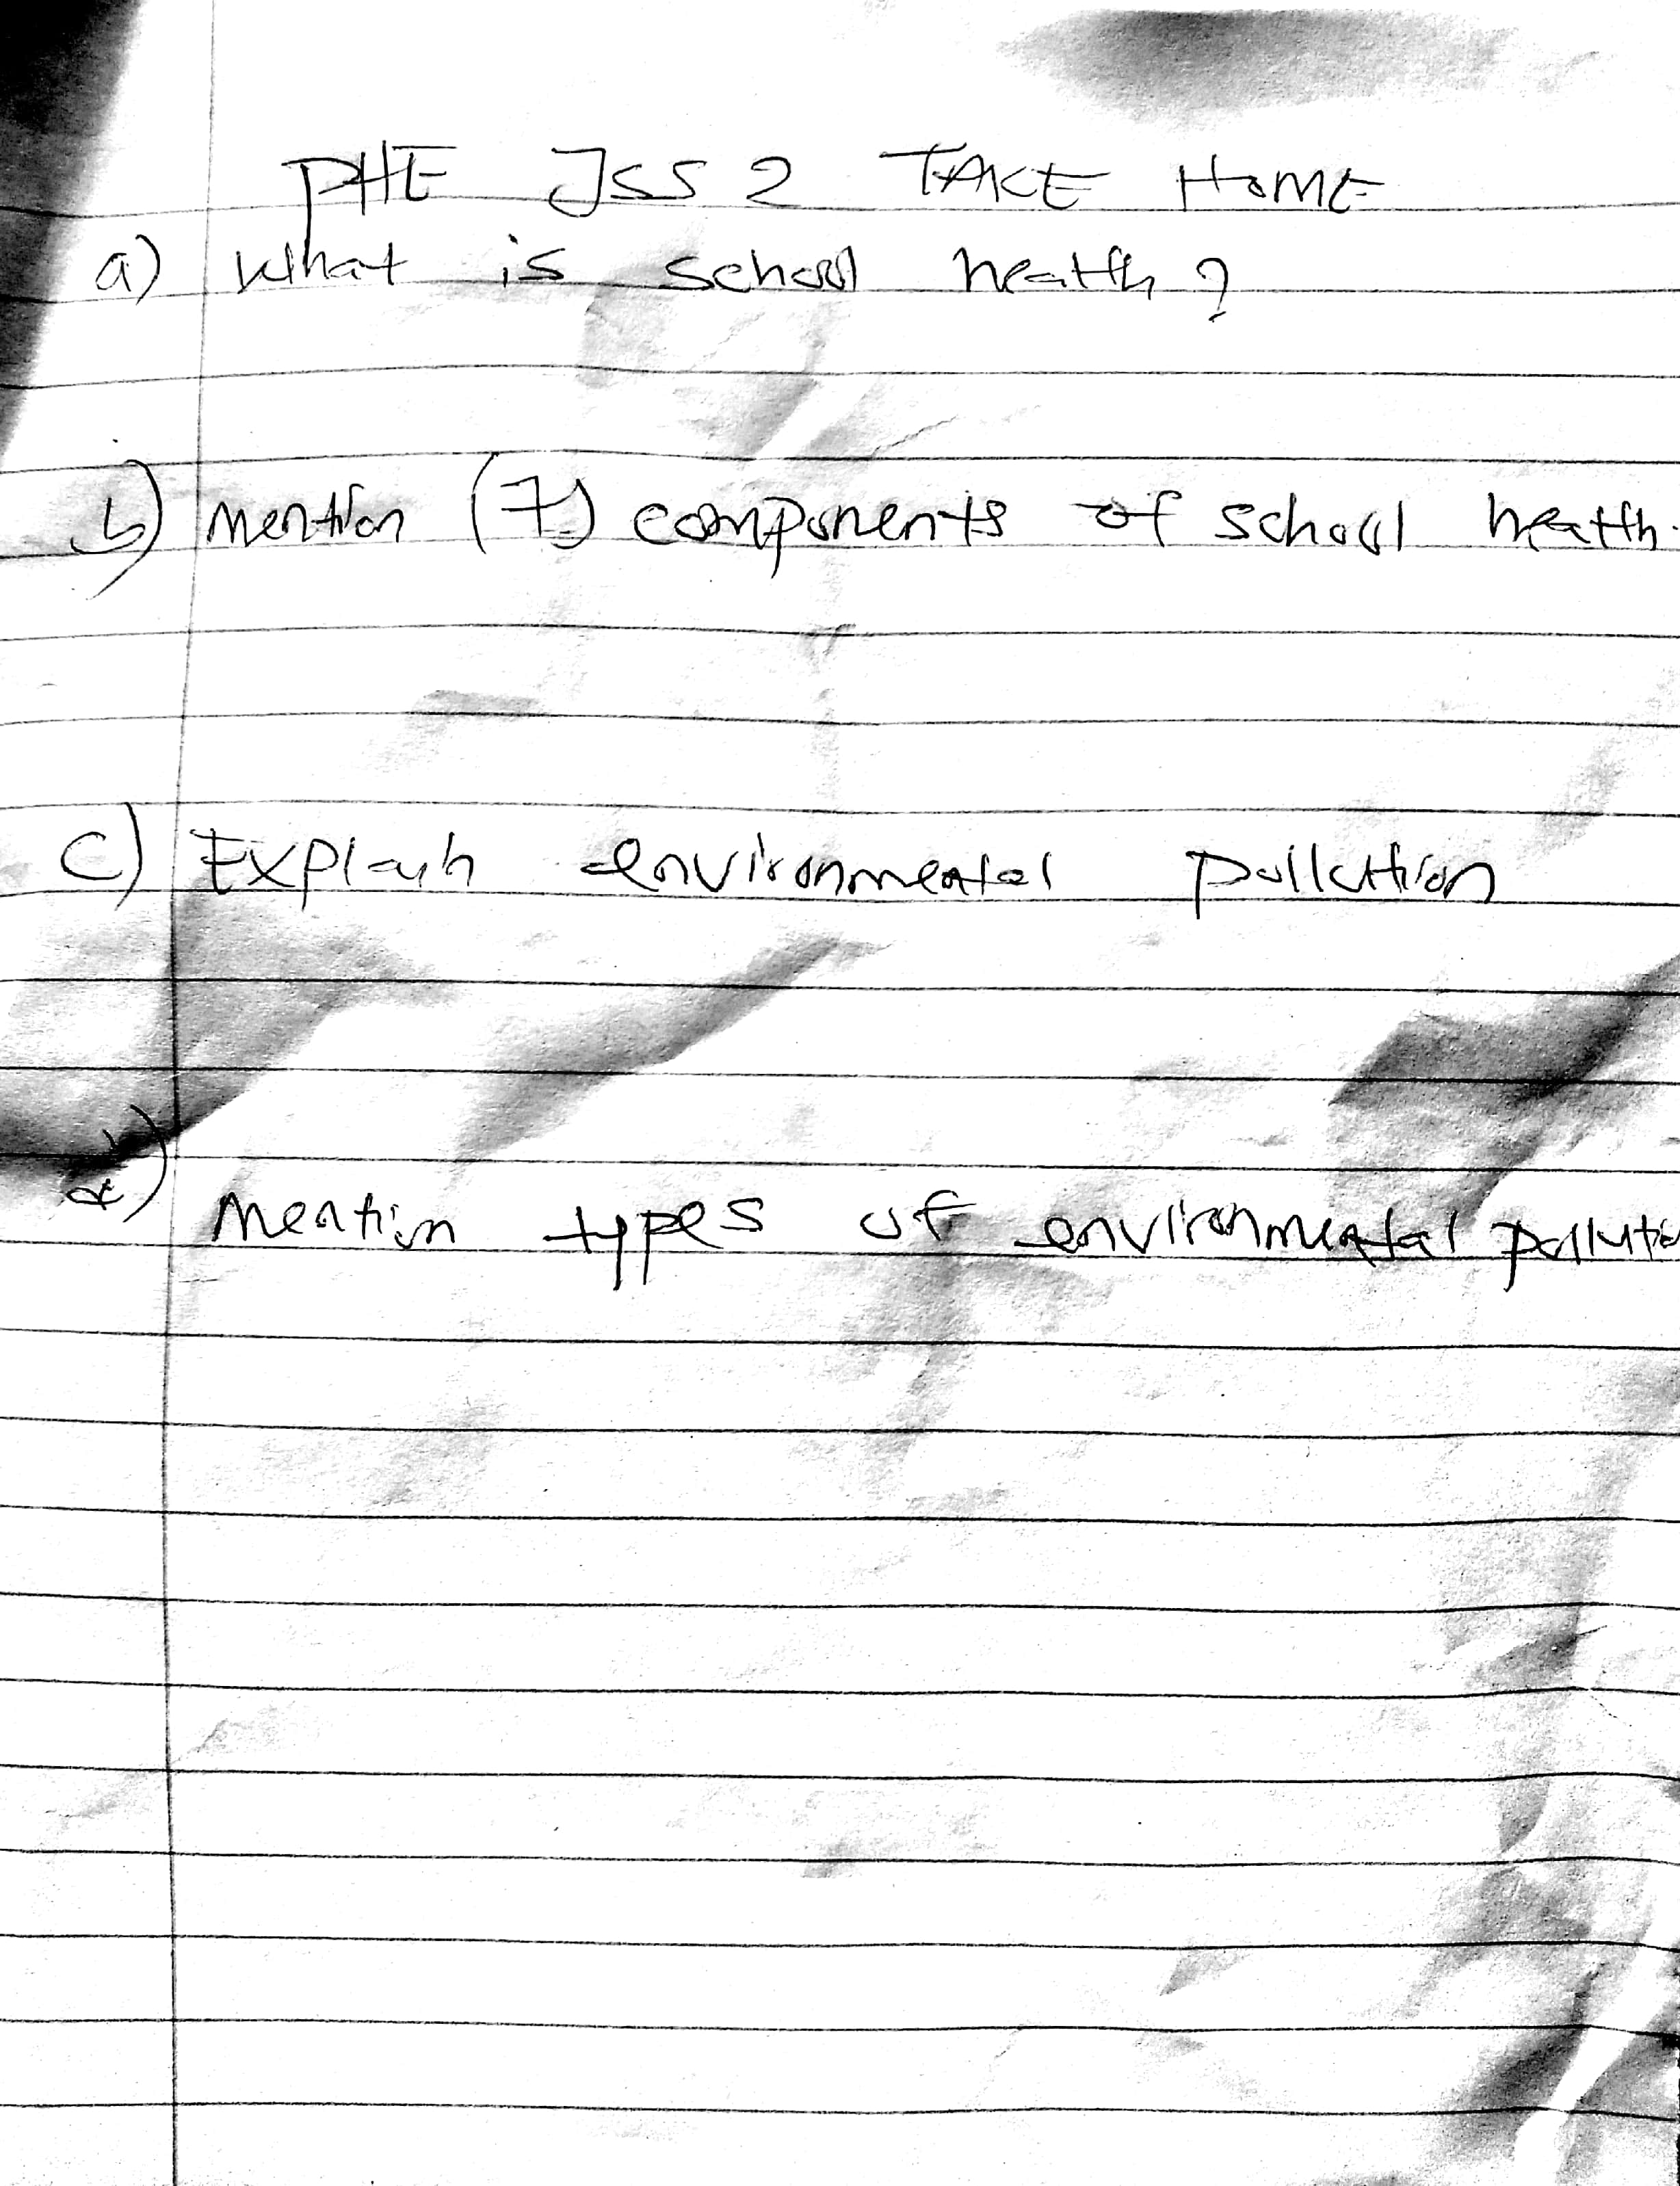 PHE JSS 2 TAKE HOME
a) What is school health?
b) mention (7) components of school health.
c) Explain environmental pollution
d) Mention types of environmental pollutio